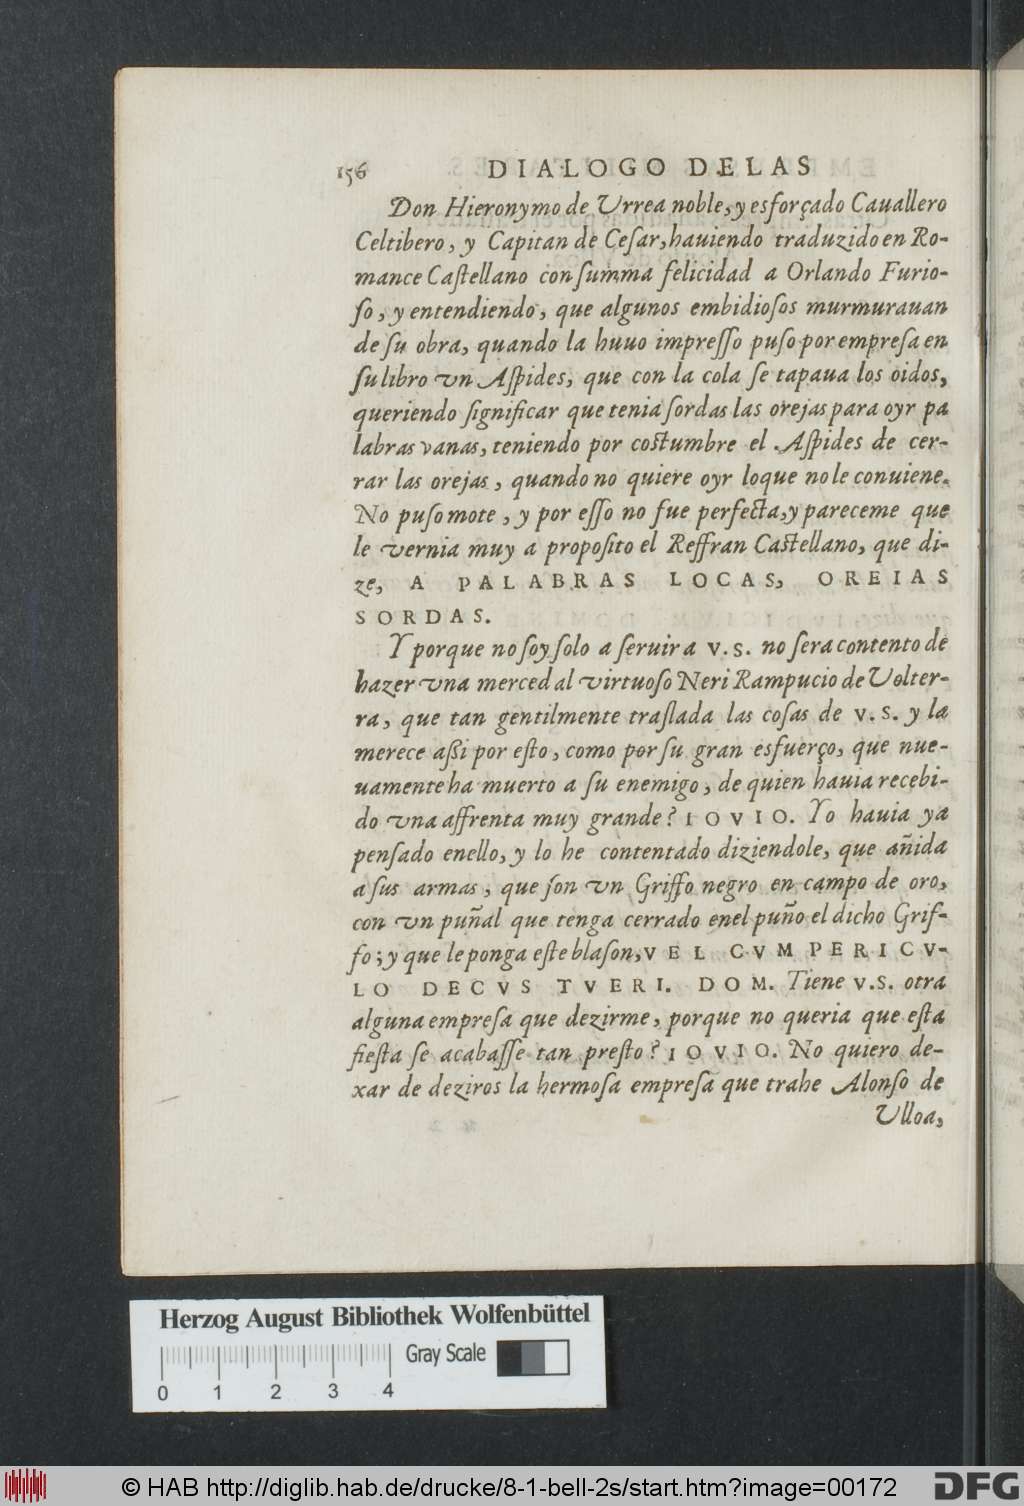 156 DIALOGO DELAS
Don Hieronymo de Vrrea noble, y esforçado Cauallero
Celtibero, y Capitan de Ceſar, hauiendo traduzido en Ro-
mance Caſtellano con ſumma felicidad a Orlando Furio-
ſo, y entendiendo, que algunos embidioſos murmurauan
de ſu obra, quando la huuo impreſſo puſo por empreſa en
ſu libro vn Aſpides, que con la cola ſe tapaua los oidos,
queriendo ſignificar que tenia ſordas las orejas para oyr pa
labras vanas, teniendo por coſtumbre el Aſpides de cer-
rar las orejas, quando no quiere oyr loque no le conuiene.
No puſo mote, y por eſſo no fue perfecta, y pareceme que
le vernia muy a propoſito el Reffran Caſtellano, que di-
ze, A PALABRAS LOCAS, OREIAS
SORDAS.
Y porque no ſoy ſolo a ſeruir a V.S. no ſera contento de
hazer vna merced al virtuoſo Neri Rampucio de Volter-
ra, que tan gentilmente traſlada las coſas de V.S. y la
merece aßi por eſto, como por ſu gran esfuerço, que nue-
uamente ha muerto a ſu enemigo, de quien hauia recebi-
do vna affrenta muy grande? IOVIO. Yo hauia ya
penſado enello, y lo he contentado diziendole, que añida
a ſus armas, que ſon vn Griffo negro en campo de oro,
con vn puñal que tenga cerrado enel puño el dicho Grif-
fo; y que le ponga eſte blaſon, VEL CVM PERICV-
LO DECVS TVERI. DOM. Tiene V.S. otra
alguna empreſa que dezirme, porque no queria que eſta
fieſta ſe acabaſſe tan preſto? IOVIO. No quiero de-
xar de deziros la hermoſa empreſa que trahe Alonſo de
Vlloa,
Herzog August Bibliothek Wolfenbüttel
Gray Scale
0 1 2 3 4
© HAB http://diglib.hab.de/drucke/8-1-bell-2s/start.htm?image=00172
DFG